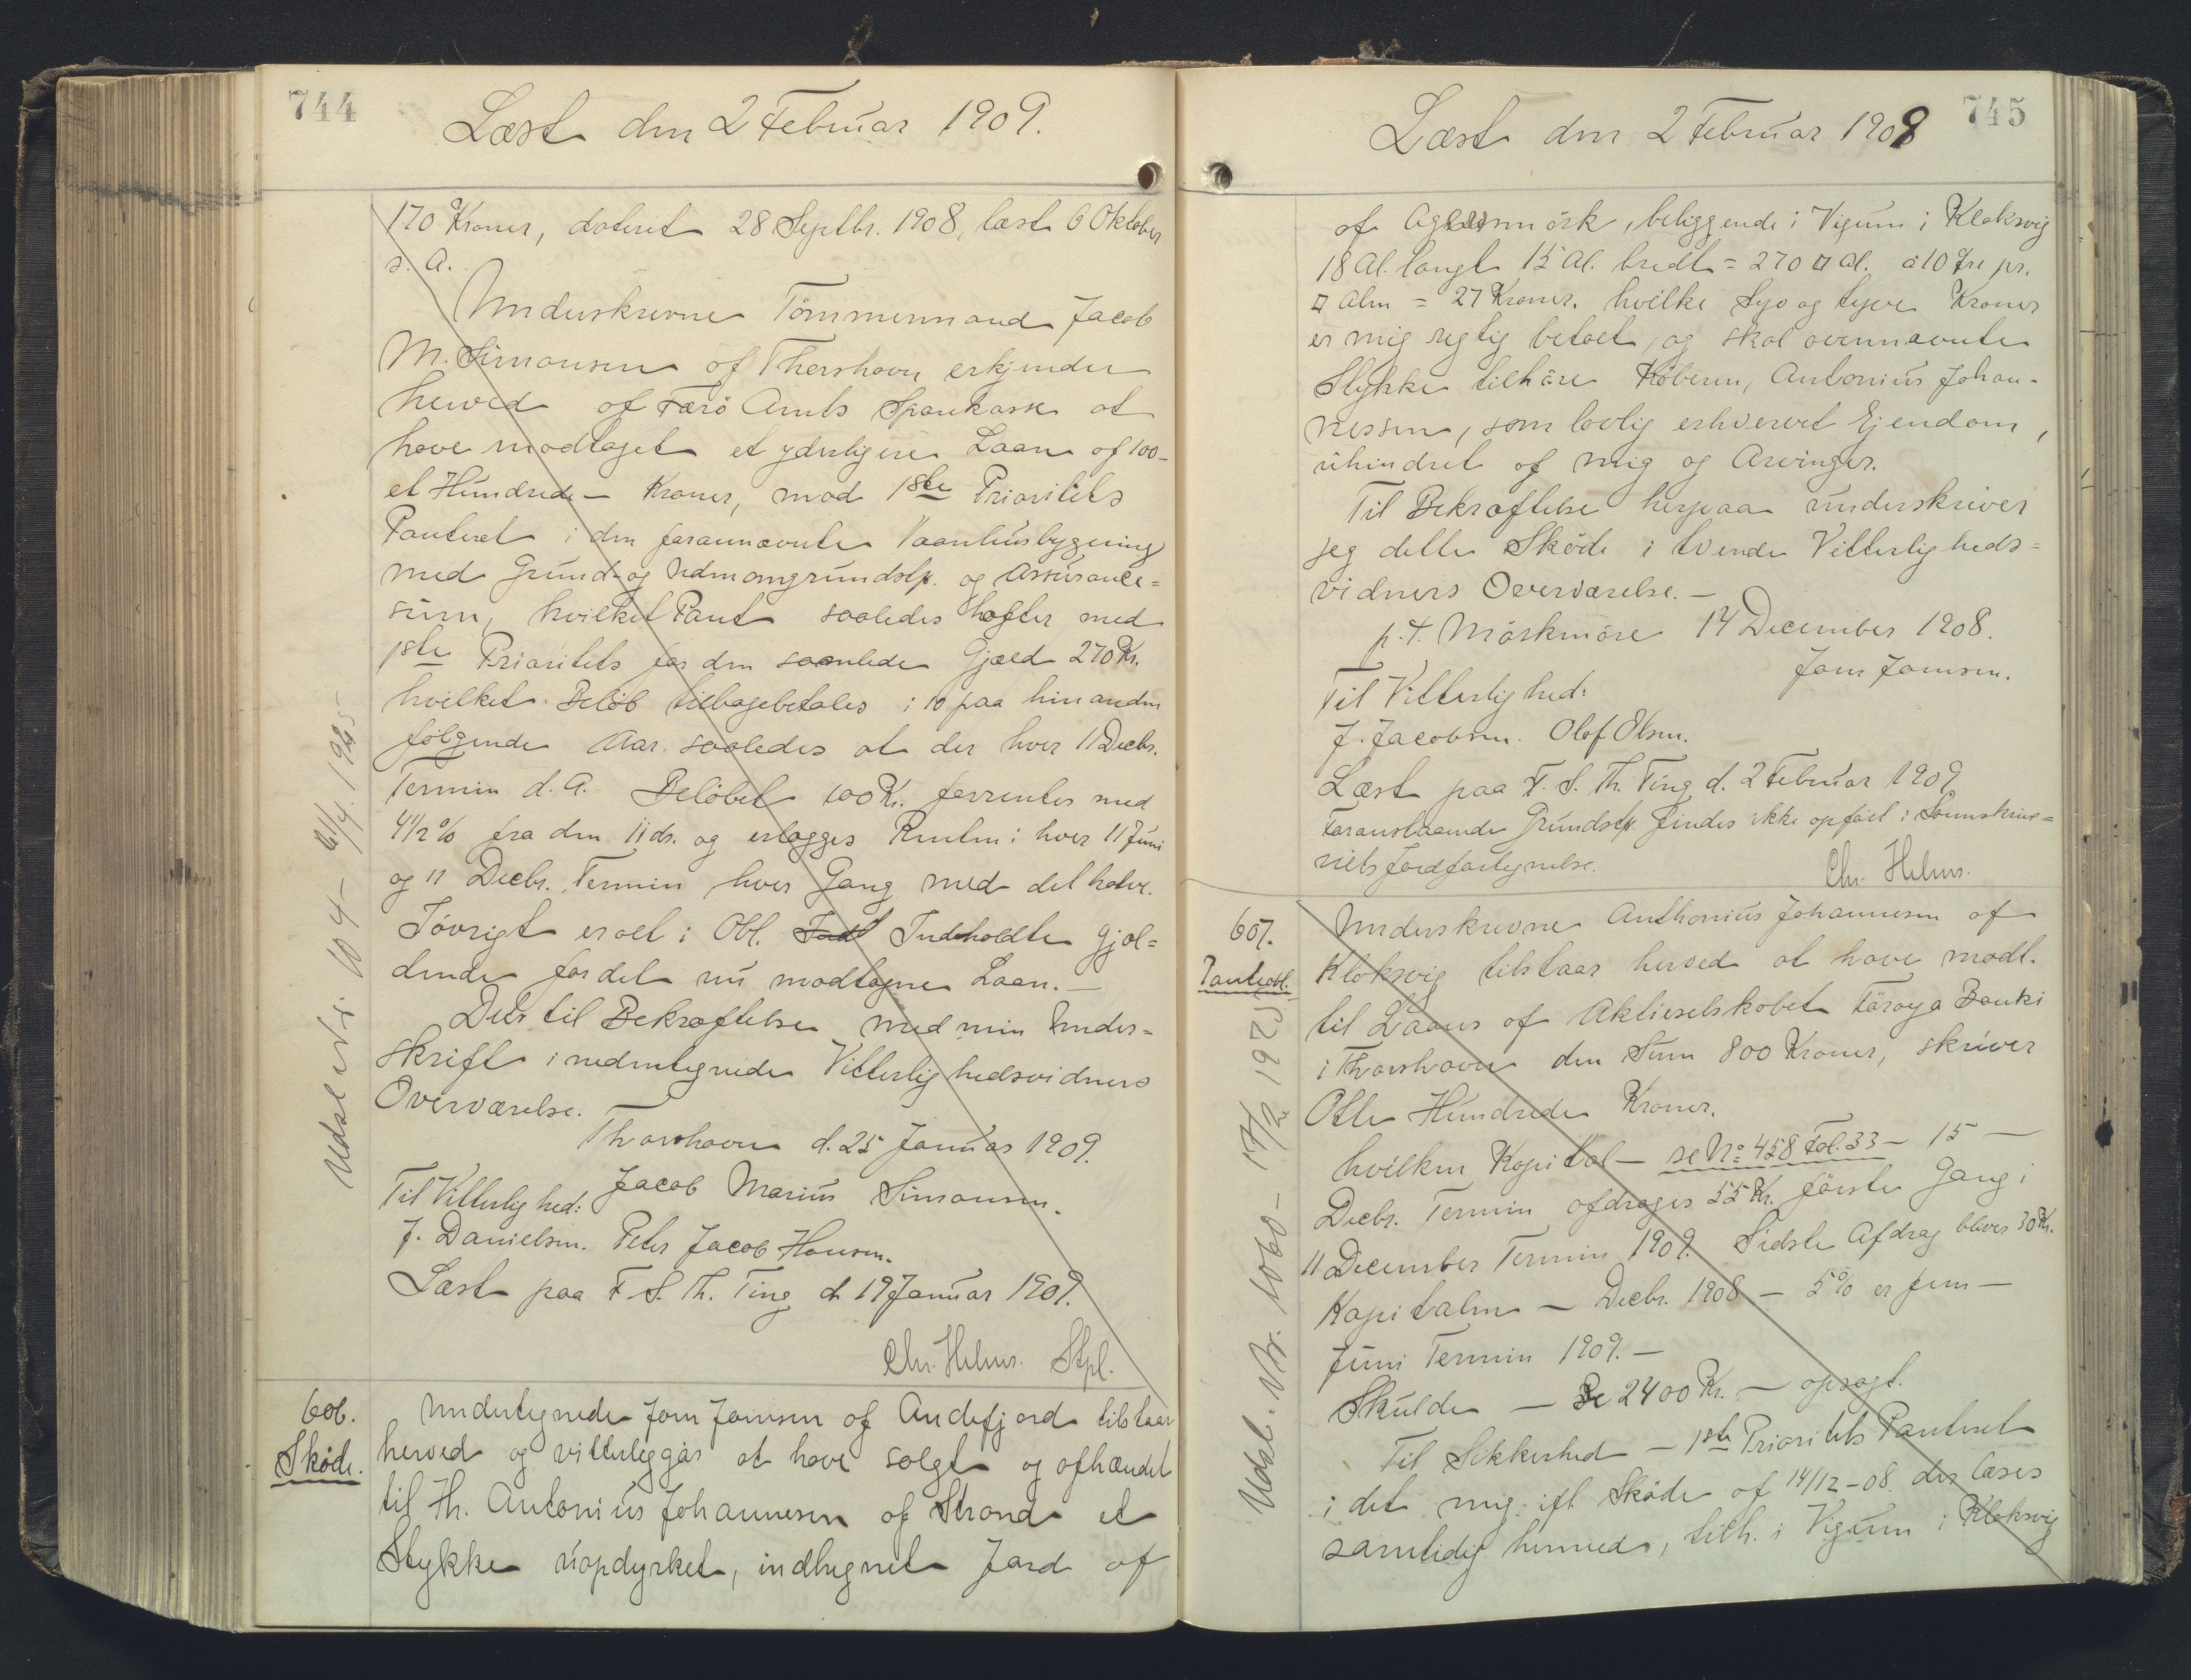 744
Læst den 2 Februar 1909.
170 Kroner, dateret 28 Septbr. 1908, læst 6 Oktober
s. A.
Underskrevne Tömmermand Jacob
M. Simonsen af Thorshavn erkjender
herved af Færö Amts Sparekasse at
have modtaget et yderligere Laan af 100-
et Hundrede - Kroner, mod 1ste Prioritets
Panteret i den forannævnte Vaanhusbygning
med Grund- og Udmarksgrundstk. og Assurance=
sum, hvilket Pant saaledes hæfter med
1ste Prioritets for den samlede Gjæld 270 Kr.
hvilket Beløb tilbagebetales i 10 paa hinanden
følgende Aar saaledes at der hver 11 Decbr.
Termin d. A. Beløbet 100 Kr. forrentes med
4 1/2 % fra den 11 ds. og erlægges Renten i hver 11 Juni
og 11 Decbr. Termin hver Gang med det halve.
Iövrigt er alt i Obl. Indholdte gjæl=
dende for det nu modtagne Laan. -
Dets til Bekræftelse med min Under=
skrift i nedentegnede Vitterlighedsvidners
Overværelse.
Thorshavn d. 25 Januar 1909.
Til Vitterlighed: Jacob Marius Simonsen.
J. Danielsen. Peter Jacob Hansen.
Læst paa F. S. Th. Ting d. 19 Januar 1909.
Chr. Helms. Stpl.
Udsl. 104 - 1925
606.
Skøde.
Undertegnede Joen Joensen af Andefjord tilstaar
herved og vitterliggør at have solgt og afhændet
til Hr. Antonius Johannesen af Strond et
Stykke uopdyrket, indhegnet Jord af
745
Læst den 2 Februar 1909
af Agersmörk, beliggende i Vigum i Klaksvig
18 Al. langt 15 Al. bredt = 270 □ Al. à 10 Øre pr.
□ Alen = 27 Kroner. hvilke Syv og tyve Kroner
er mig rigtig betalt, og skal ovennævnte
Stykke tilhöre Köberen, Antonius Johan-
nessen, som lovlig erhvervet Ejendom,
uhindret af mig og Arvinger.
Til Bekræftelse herpaa underskriver
jeg dette Sköde i tvende Vitterligheds=
vidners Overværelse. -
p. t. Mörkmöre 14 December 1908.
Joen Joensen.
Til Vitterlighed:
J. Jacobsen. Olaf Olsen.
Læst paa F. S. Th. Ting d. 2 Februar 1909
Foranstaaende Grundstk. findes ikke opført i Sorenskrive=
riets Jordfortegnelse.
Chr. Helms.
607.
Panteobl.
Underskrevne Anthonius Johannesen af
Klaksvig tilstaar herved at have modt.
til Laans af Aktieselskabet Föroya Banki
i Thorshavn den Sum 800 Kroner, skriver
Otte Hundrede Kroner.
hvilken Kapital - se No 458 Fol. 33 - 15 -
Decbr. Termin afdrages 55 Kr. første Gang i
11 December Termin 1909. Sidste Afdrag bliver 30 Kr.
Kapitalen - Decbr. 1908 - 5% er fem -
Juni Termin 1909. -
Skulde - Be 2400 Kr. - opsagt.
Til Sikkerhed - 1ste Prioritets Panteret
i det mig ifl Sköde af 14/12-08. der læses
samtidig hermed, tilh. i Vigum i Klaksvig
Udsl. Nr. 1060 - 17/2 1925